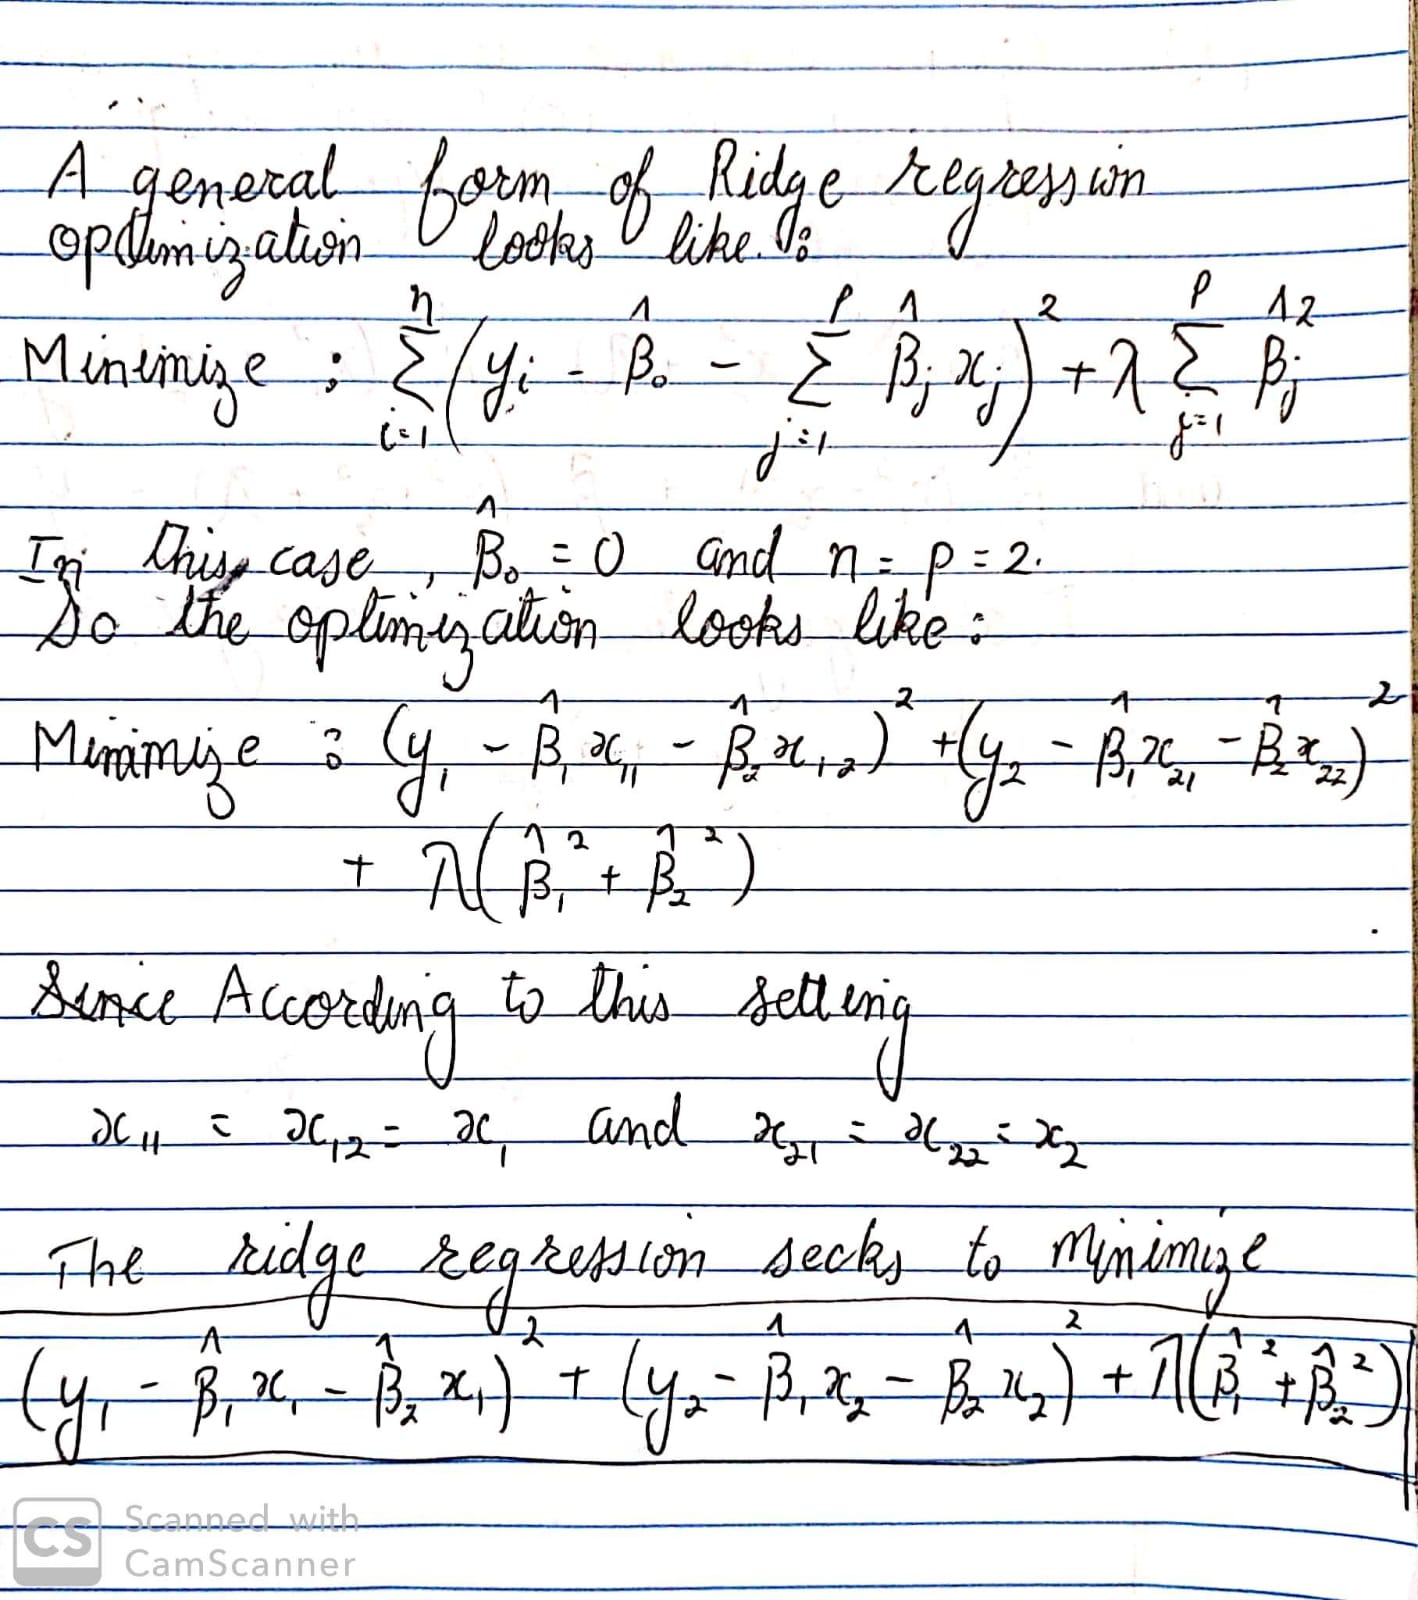 A general form of Ridge regression
optimization looks like :
Minimize : n Σ i=1 (yi - β̂0 - p Σ j=1 β̂j xj)² + λ p Σ j=1 β̂j²
In this case, β̂0 = 0 and n = p = 2.
So the optimization looks like :
Minimize : (y1 - β̂1 x11 - β̂2 x12)² + (y2 - β̂1 x21 - β̂2 x22)²
+ λ(β̂1² + β̂2²)
Since According to this setting
x11 = x12 = x1 and x21 = x22 = x2
The ridge regression seeks to minimize
(y1 - β̂1 x1 - β̂2 x1)² + (y2 - β̂1 x2 - β̂2 x2)² + λ(β̂1² + β̂2²)
CS Scanned with
CamScanner